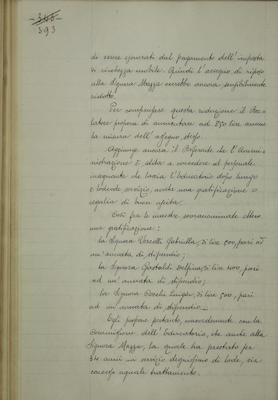 345
393
di essere esonerati dal pagamento dell'imposta
di ricchezza mobile. Quindi l'assegno di riposo
alla Signora Mazza verrebbe ancora sensibilmente
ridotto.
Per compensare questa riduzione il Re-
latore propone di aumentare ad 850 lire annue
la misura dell'assegno stesso.
Aggiunge ancora il Referente che l'Ammi-
nistrazione è solita a concedere al personale
insegnante che lascia l'Educatorio dopo lungo
e lodevole servizio, anche una gratificazione o
regalia di buon'uscita.
Così fra le maestre soprannominate ebbero
una gratificazione:
la Signora Vercelli Gabriella, di lire 500, pari ad
un'annata di stipendio;
la Signora Gastaldi Delfina, di lire 400, pari
ad un'annata di stipendio;
la Signora Luigia, di lire 500, pari
ad un'annata di stipendio.
Egli propone pertanto, concordemente con la
Commissione dell'Educatorio, che anche alla
Signora Mazza, la quale ha prestato per
34 anni un servizio degnissimo di lode, sia
concesso uguale trattamento.